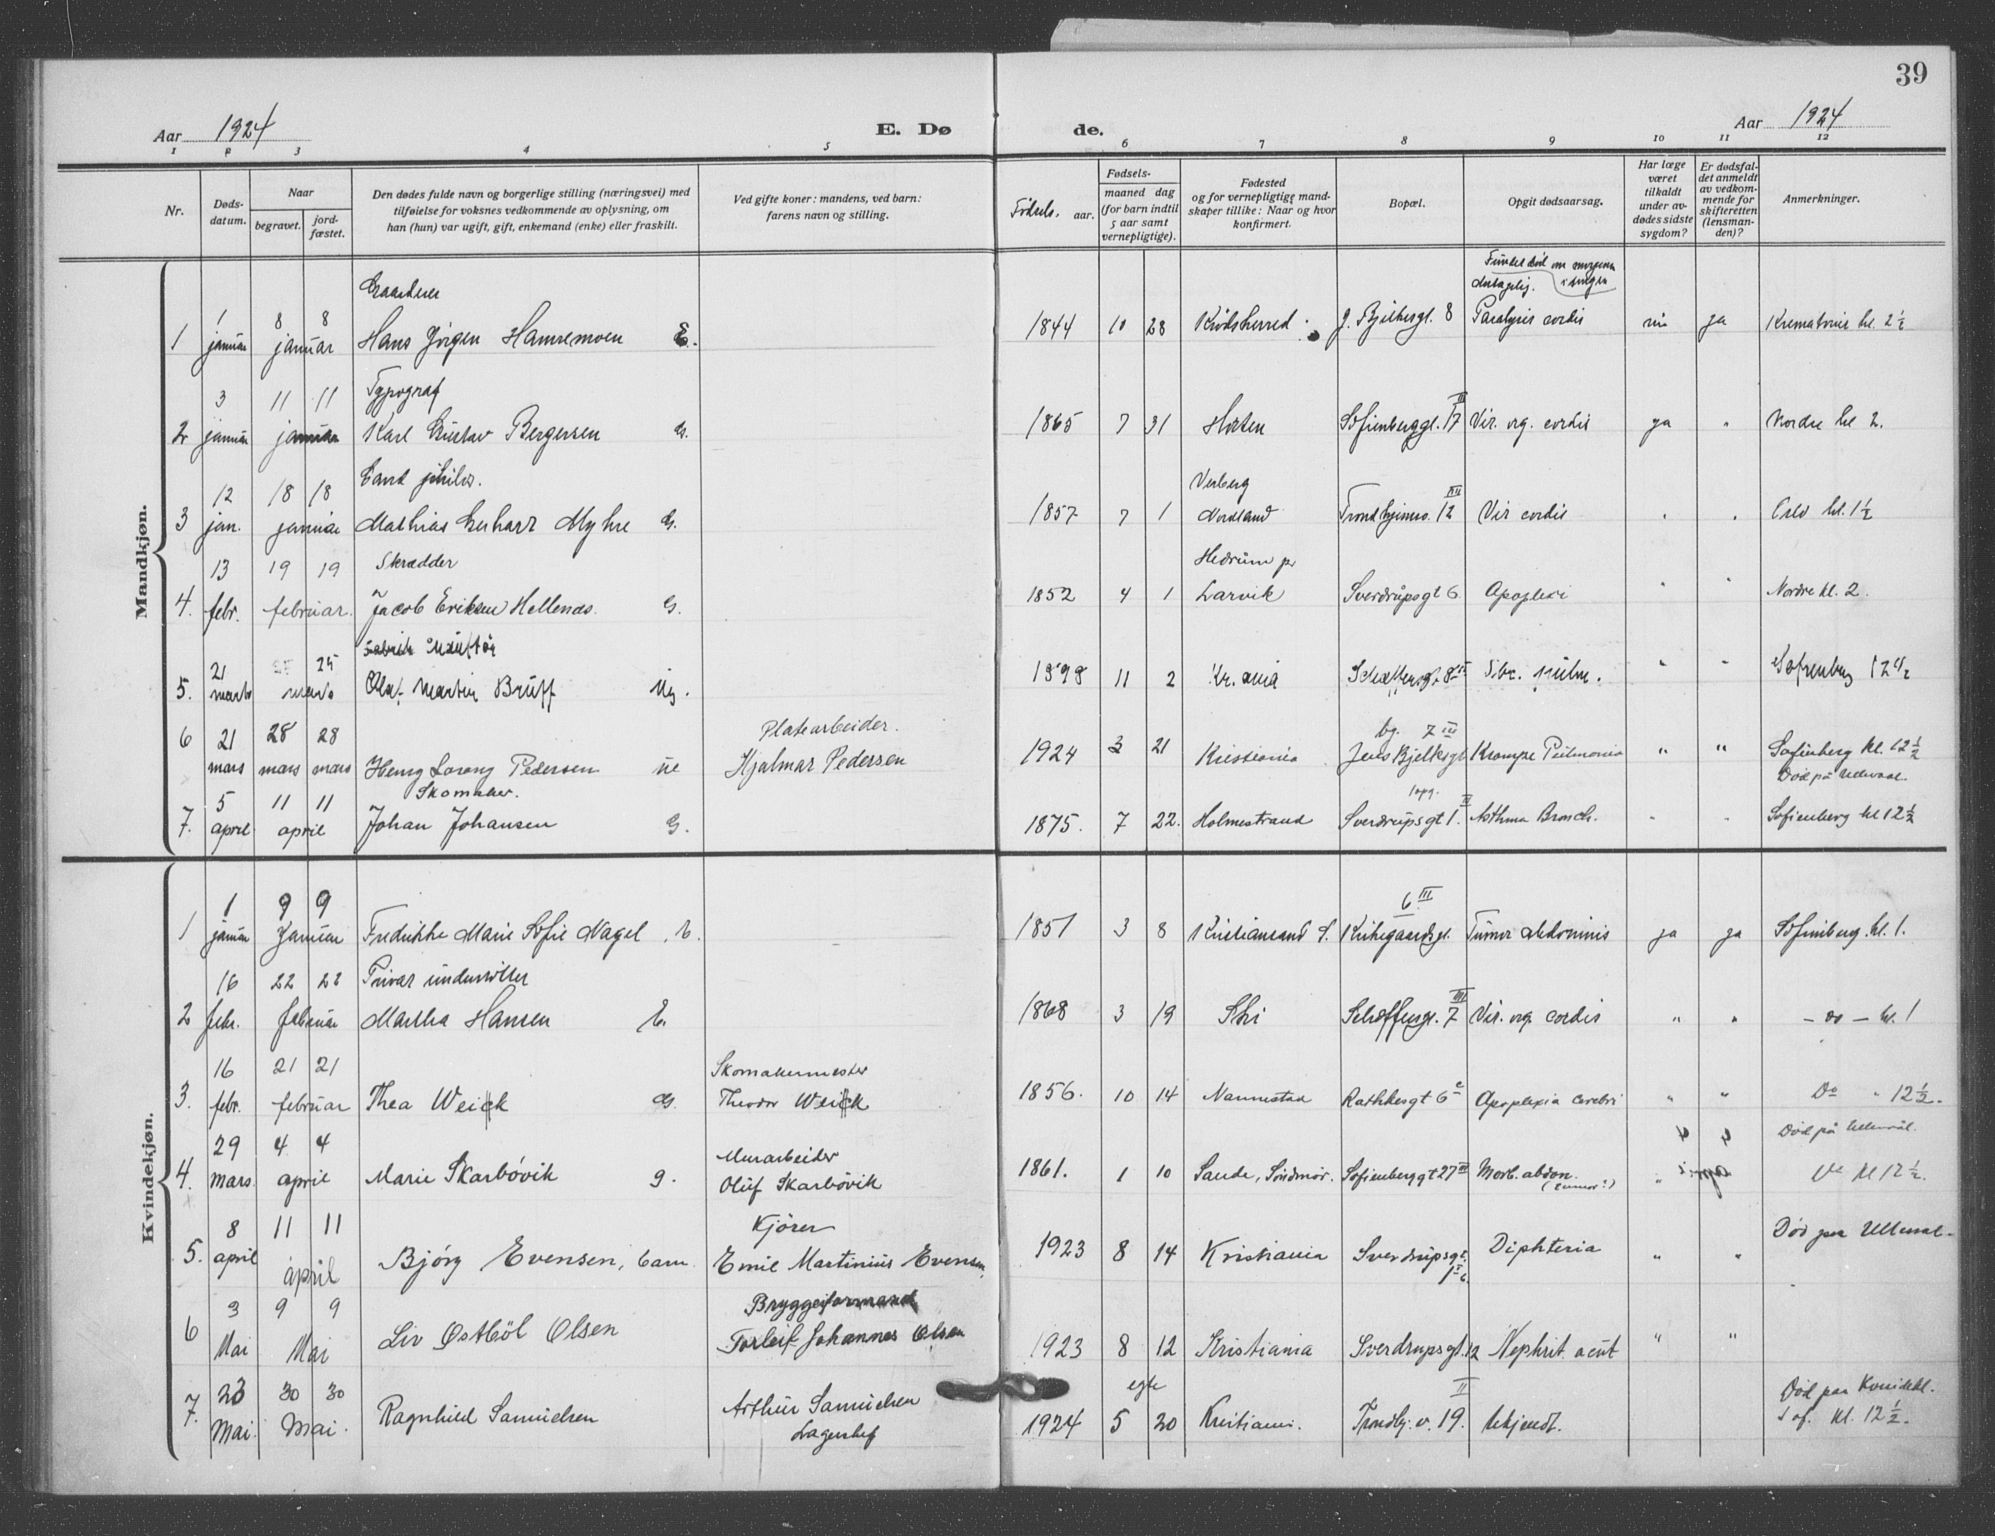 39
Aar 1924 E. Dø de. Aar 1924
1 2 3 4 5 6 7 8 9 10 11 12
Nr. Døds-datum. Naar begravet. jord-fæstet. Den dødes fulde navn og borgerlige stilling (næringsvei) med tilføielse for voksnes vedkommende av oplysning, om han (hun) var ugift, gift, enkemand (enke) eller fraskilt. Ved gifte koner: mandens, ved barn: farens navn og stilling. Fødsels. aar. Fødsels-maaned dag (for barn indtil 5 aar samt vernepligtige). Fødested og for vernepligtige mand-skaper tillike: Naar og hvor konfirmert. Bopæl. Opgit dødsaarsag. Har læge været tilkaldt under av-dødes sidste sygdom? Er dødsfal-det anmeldt av vedkom-mende for skifteretten (lensman-den)? Anmerkninger.
Mandkjøn.
Gaardeier Fundet død om morgenen i sengen
1 8 8 antagelig.
1 januar januar Hans Jörgen Hamremoen E. 1844 10 28 Krödsherred J. Bjelkesgt. 8 Paralysis cordis nei ja Krematoriet kl. 2½
3 11 11 Typograf III
2 januar januar Karl Gustav Bergersen G. 1865 7 31 Horten Sofienberggt. 17 Vit. org. cordis ja " Nordre kl 2.
12 18 18 Cand philos. III
3 jan. januar Mathias Gerhard Myhre G. 1857 7 1 Nordland Trondhjemsv. 12 Vit cordis " " Oslo kl. 1½
13 19 19 Skrædder Hedrum pr
4. febr. februar. Jacob Eriksen Hellenes. G. 1852 4 1 Larvik Sverdrupsgt 6 Apoplexi " " Nordre kl. 2.
21 25 25
5. marts marts Olaf Martin Bruff Ug. 1898 11 2 Kr.ania 8 III Tbc. pulm. " " Sofienberg 12½
6 21 28 28 Platearbeider. bg. 7 III
mars mars mars Henry Lorang Pedersen ue Hjalmar Pedersen 1924 3 21 Kristiania Jens Bjelkesgt Kroupøs Pulmonia " " Sofienberg kl. 12½
Skomaker. Död på Ullevaal.
5 11 11 1opg. III
7. april april Johan Johansen G. 1875. 7 22. Holmestrand Sverdrupsgt 1. Asthma Bronch. " " Sofienberg kl 12½
Kvindekjøn.
1 9 9 6 III
1 januar Januar Fredrikke Marie Sofie Nagel E. 1851 3 8 Kristiansand S. Kirkegaardsgt. Tumor abdominis ja ja Sofienberg. kl. 1.
16 22 22 Privat understöttet III
2 febr. februar Martha Hansen E. 1868 3 19 Ski Schæffersgt. 7 Vit. org. cordis " " – do – kl. 1
16 21 21 Skomakermester
3. febr. februar Thea Weick G. Theodor Weick 1856. 10 14 Nannestad Rathkesgt 6 c Apoplexia cerebri " " Do " 12½.
29 4 4 Murarbeider Död på Ullevål.
4. mars. april Marie Skarbövik g. Oluf Skarbövik 1861. 1 10 Sande, Söndmör. Sofienberggt 27 III Morb. abdom. (tumor?) " Do kl 12½.
8 11 11 Kjörer
5. april april Björg Evensen, barn. Emil Martinius Evensen. 1923 8 14 Kristiania Sverdrupsgt. Diphteria " " Död paa Ullevaal.
3 9 9 Bryggeiformand
6 Mai Mai Liv Östböl Olsen Torleif Johannes Olsen 1923 8 12 Kristiania Sverdrupsgt. 12 Nephrit. acut " "
23 30 30 Arthur Samuelsen egte II Död paa Kvindekl.
7. Mai. Mai. Ragnhild Samuelsen Lagerchef 1924 5 20 Kristiania. Trondhj.v. 19. Ukjendt. Sof. Kl. 12½.